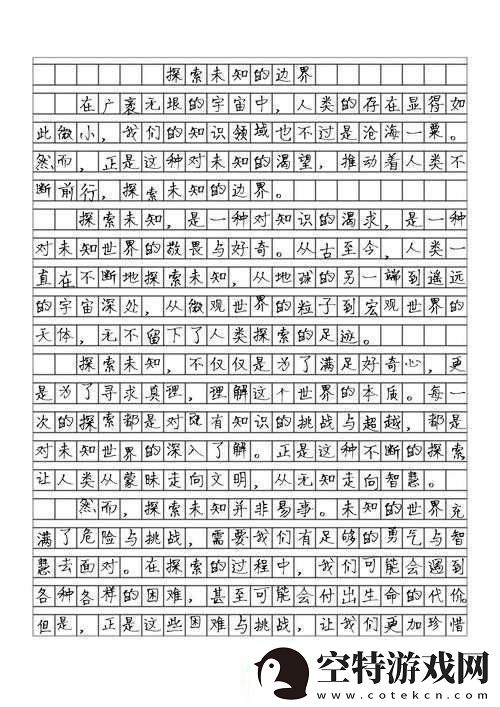 探索未知的边界
在广袤无垠的宇宙中，人类的存在显得如
此微小，我们的知识领域也不过是沧海一粟。
然而，正是这种对未知的渴望，推动着人类不
断前行，探索未知的边界。
探索未知，是一种对知识的渴求，是一种
对未知世界的敬畏与好奇。从古至今，人类一
直在不断地探索未知，从地球的另一端到遥远
的宇宙深处，从微观世界的粒子到宏观世界的
天体，无不留下了人类探索的足迹。
探索未知，不仅仅是为了满足好奇心，更
是为了寻求真理，理解这个世界的本质。每一
次的探索都是对既有知识的挑战与超越，都是
对未知世界的深入了解。正是这种不断的探索
让人类从蒙昧走向文明，从无知走向智慧。
然而，探索未知并非易事。未知的世界充
满了危险与挑战，需要我们有足够的勇气与智
慧去面对。在探索的过程中，我们可能会遇到
各种各样的困难，甚至可能会付出生命的代价。
但是，正是这些困难与挑战，让我们更加珍惜
空特游戏网
www.cotekcn.com